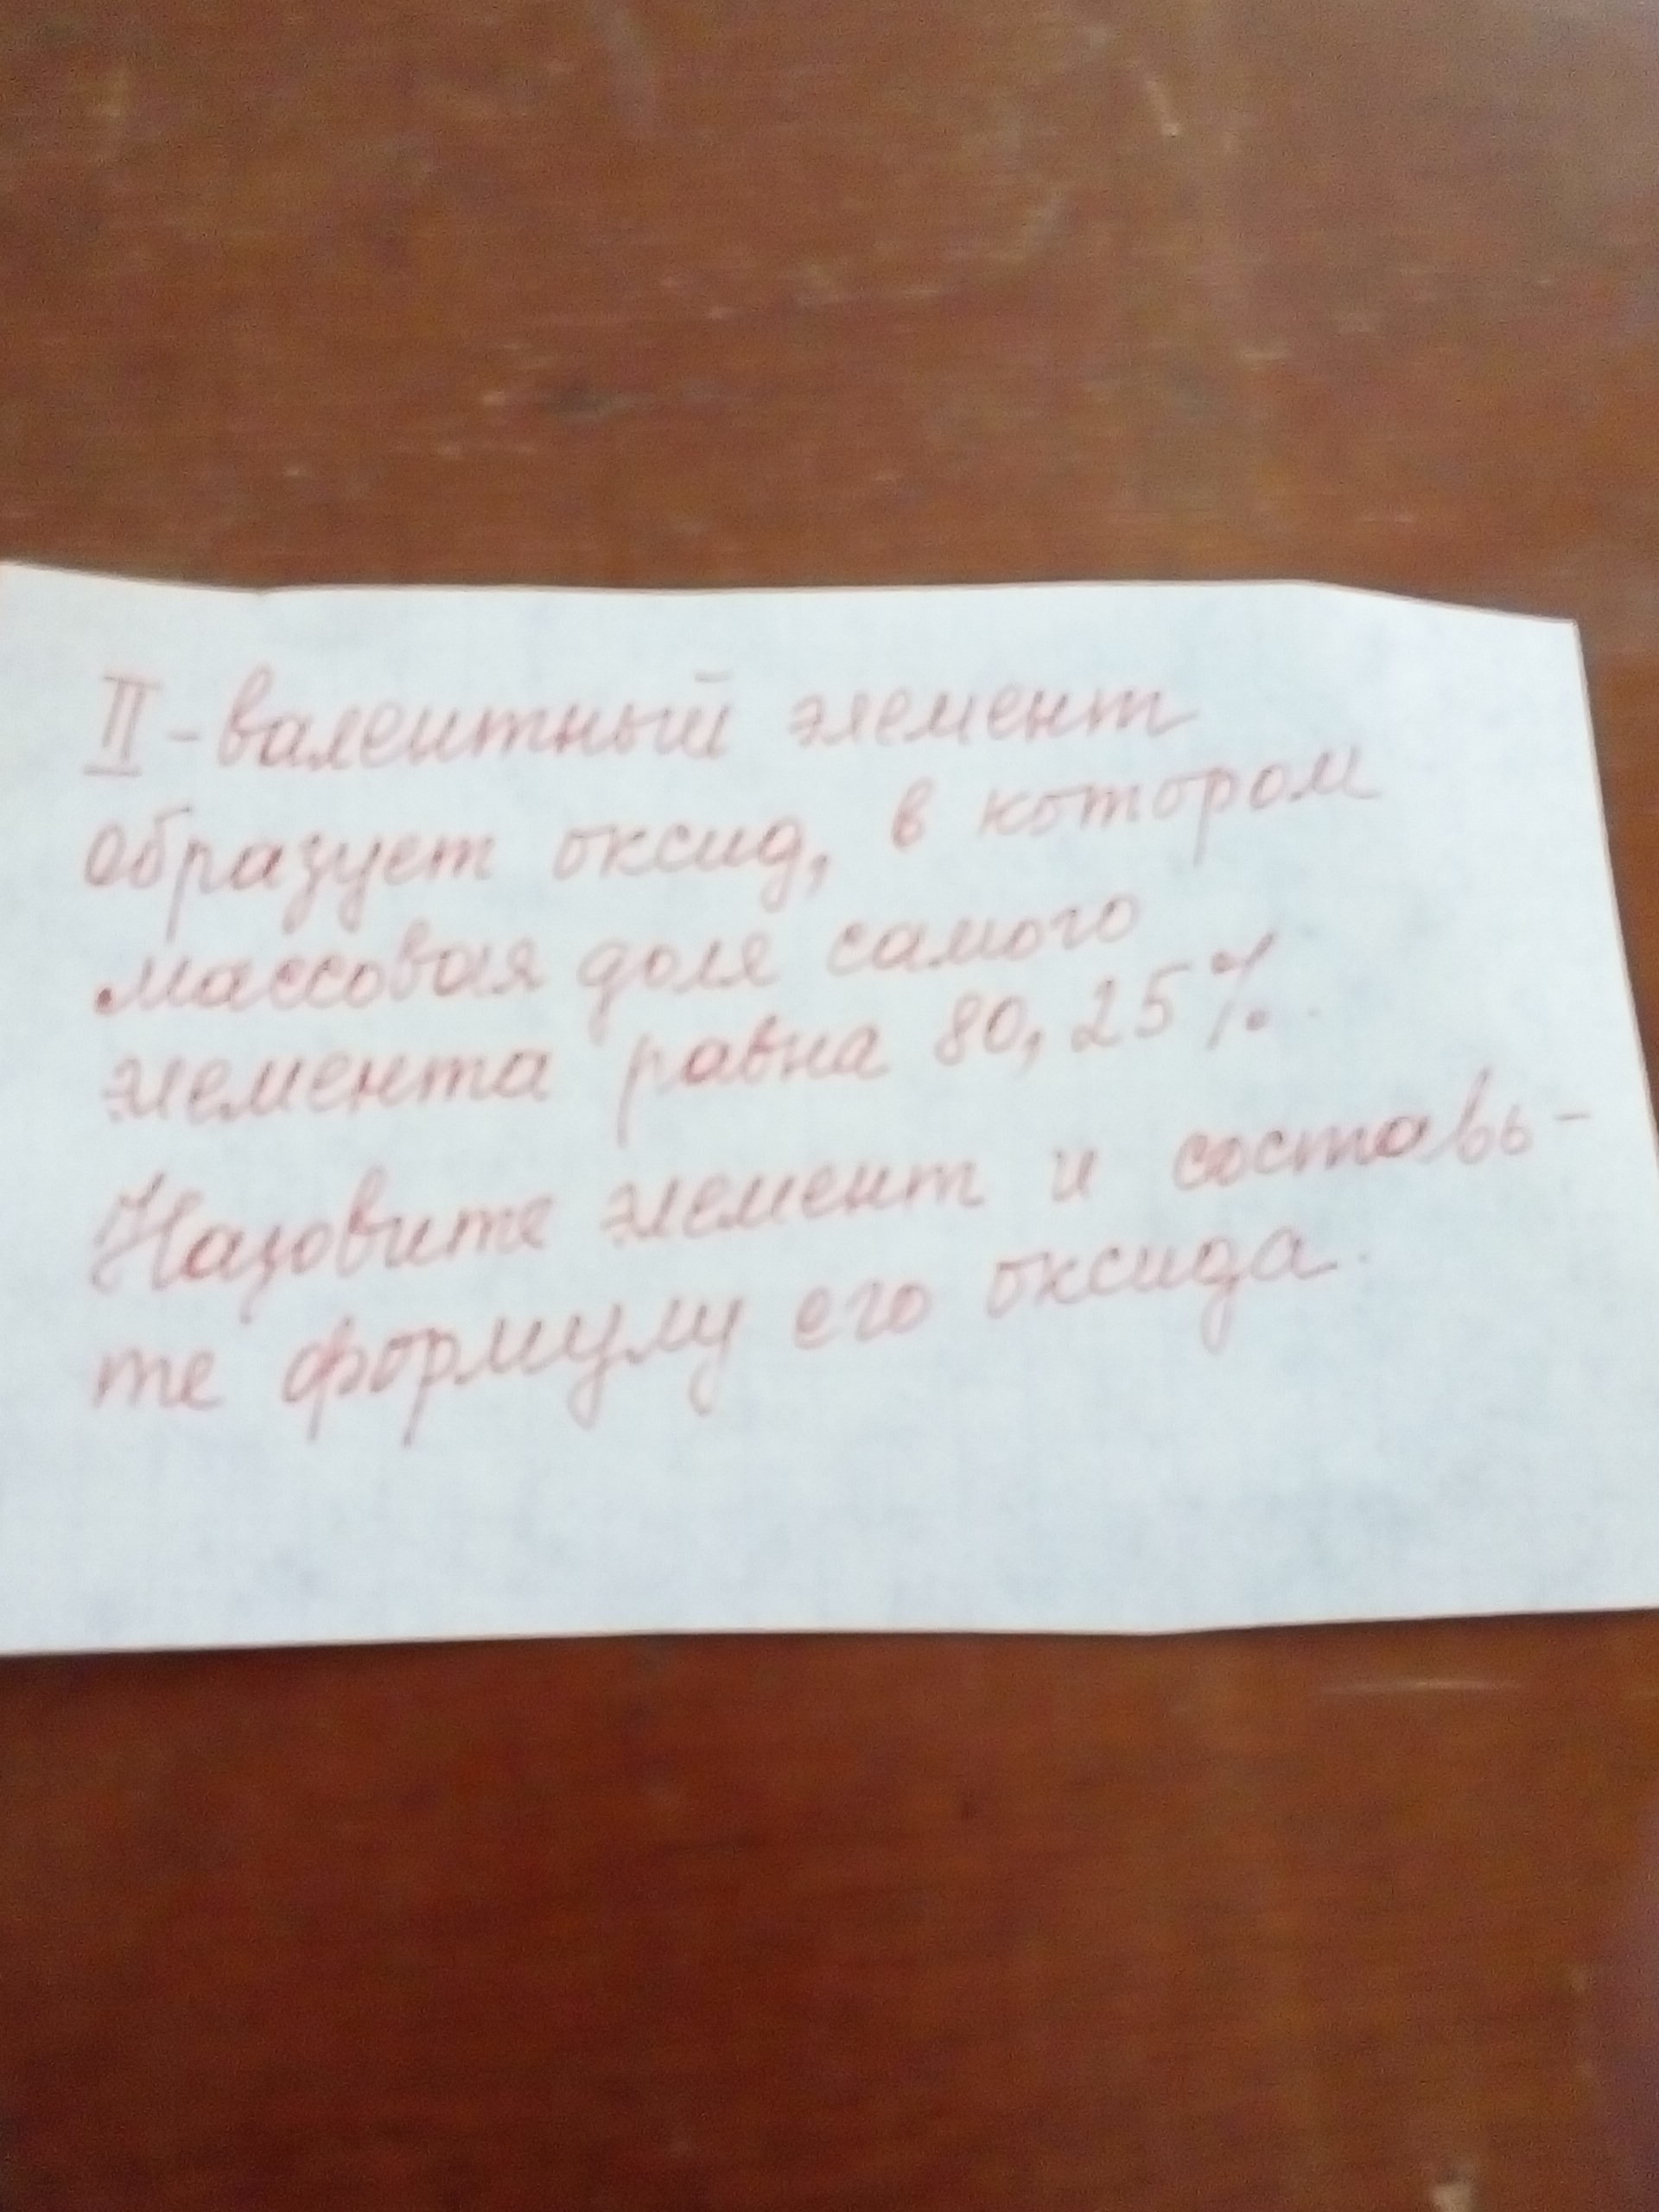 II-валентный элемент
образует оксид, в котором
массовая доля самого
элемента равна 80,25%.
Назовите элемент и составь-
те формулу его оксида.